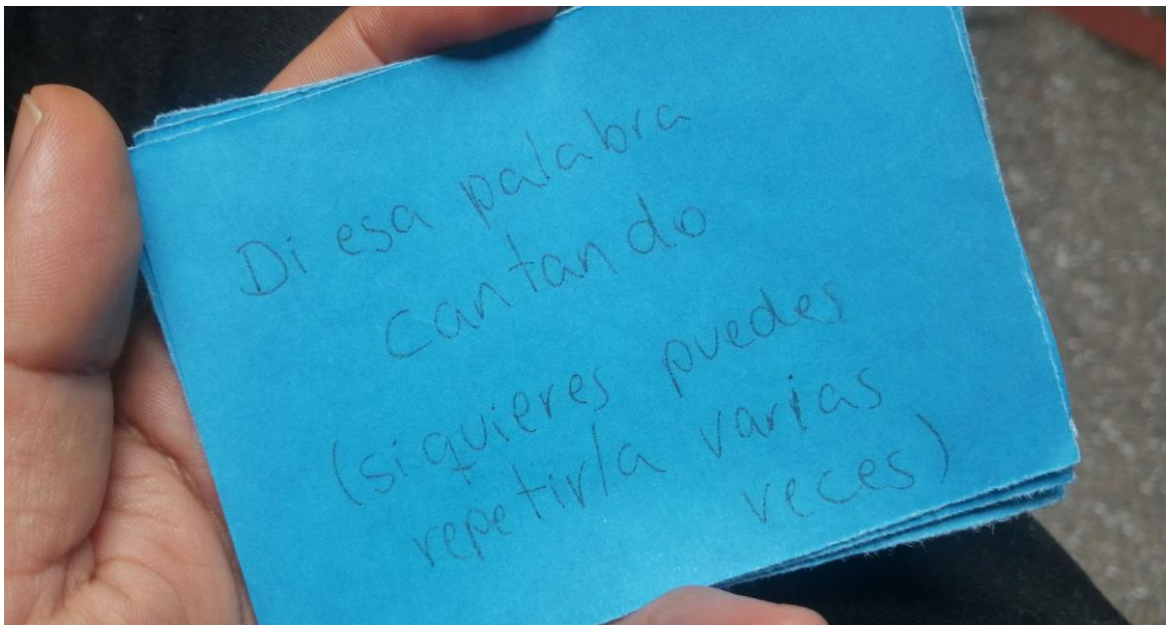 Di esa palabra
cantando
(si quieres puedes
repetirla varias
veces)